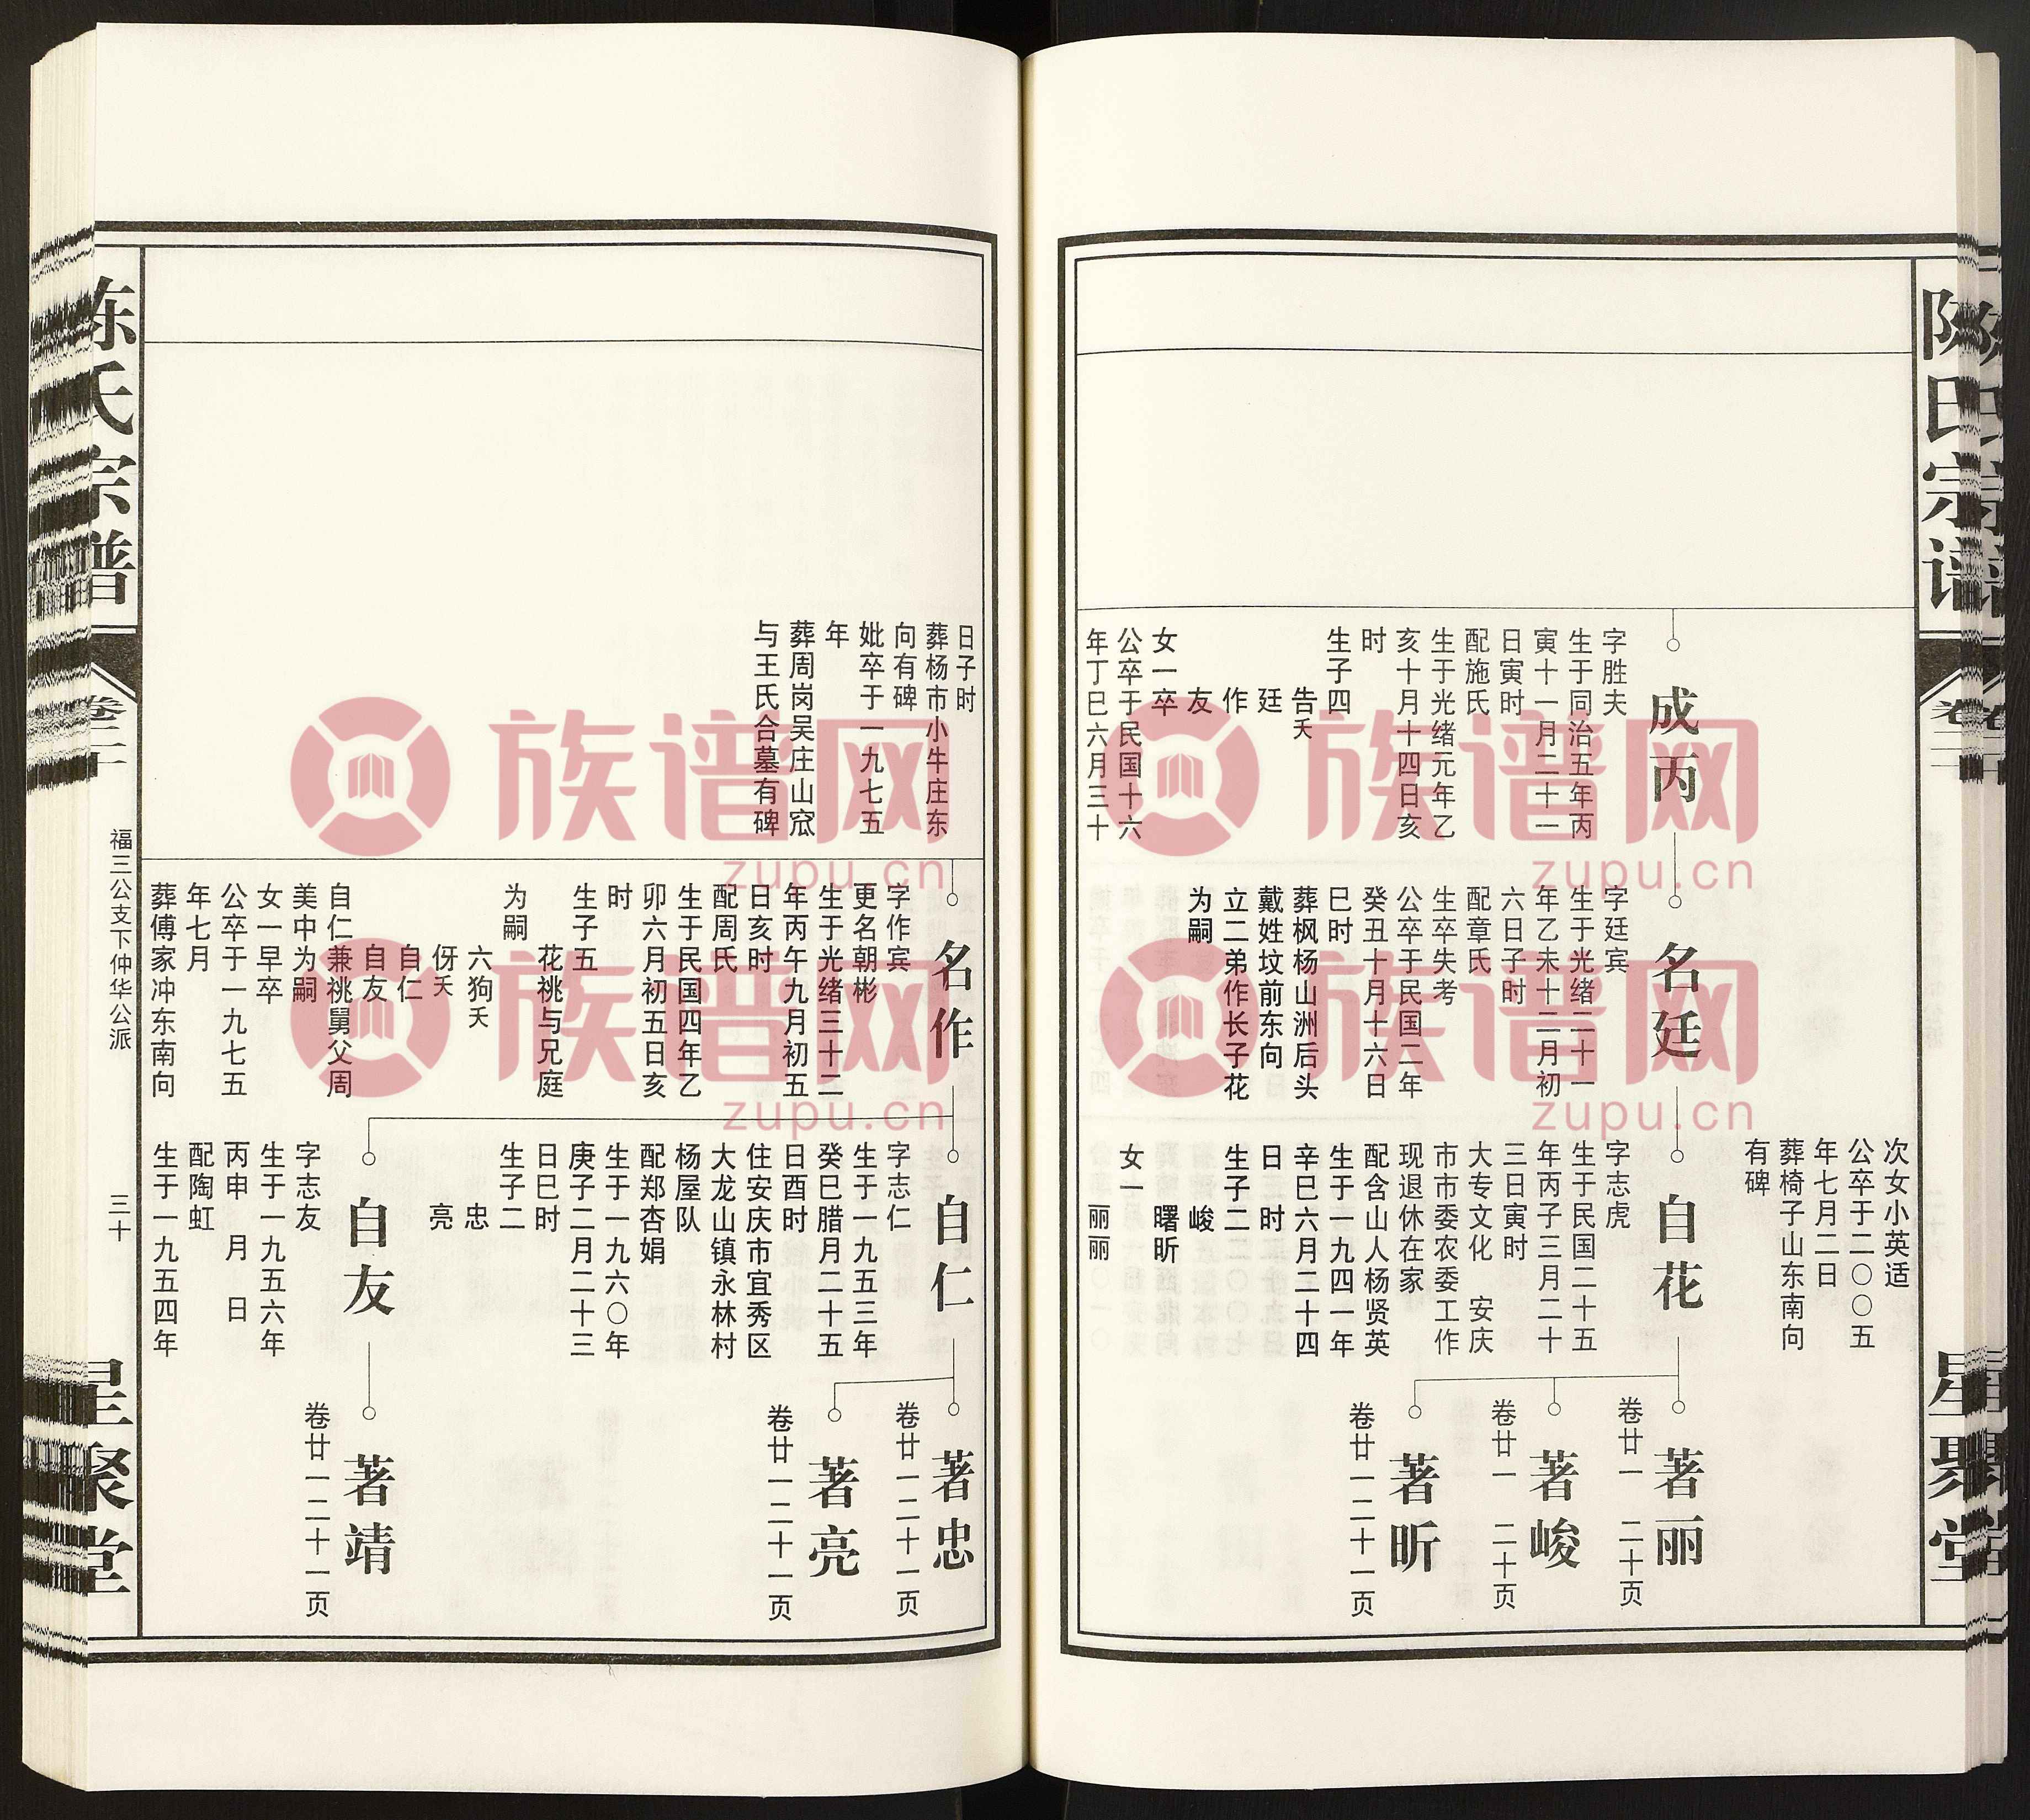 陈氏宗谱
卷二十
星聚堂
成丙
字胜夫
生于同治五年丙
寅十一月二十一
日寅时
配施氏
生于光绪元年乙
亥十月十四日亥
时
生子四
告夭
廷
作
友
女一卒
公卒于民国十六
年丁巳六月三十
名廷
字廷宾
生于光绪二十一
年乙未十二月初
六日子时
配章氏
生卒失考
公卒于民国二年
癸丑十月十六日
巳时
葬枫杨山洲后头
戴姓坟前东向
立二弟作长子花
为嗣
次女小英适
公卒于二〇〇五
年七月二日
葬椅子山东南向
有碑
自花
字志虎
生于民国二十五
年丙子三月二十
三日寅时
大专文化 安庆
市市委农委工作
现退休在家
配含山人杨贤英
生于一九四一年
辛巳六月二十四
日 时
生子二
峻
曙昕
女一
丽丽
著丽
卷廿一 二十页
著峻
卷廿一 二十页
著昕
卷廿一二十一页
日子时
葬杨市小牛庄东
向有碑
妣卒于一九七五
年
葬周岗吴庄山窊
与王氏合墓有碑
名作
字作宾
更名朝彬
生于光绪三十二
年丙午九月初五
日亥时
配周氏
生于民国四年乙
卯六月初五日亥
时
生子五
花祧与兄庭
为嗣
六狗夭
伢夭
自仁
自友
自仁兼祧舅父周
美中为嗣
女一早卒
公卒于一九七五
年七月
葬傅家冲东南向
自仁
字志仁
生于一九五三年
癸巳腊月二十五
日酉时
住安庆市宜秀区
大龙山镇永林村
杨屋队
配郑杏娟
生于一九六〇年
庚子二月二十三
日巳时
生子二
忠
亮
自友
字志友
生于一九五六年
丙申 月 日
配陶虹
生于一九五四年
著忠
卷廿一二十一页
著亮
卷廿一二十一页
著靖
卷廿一二十一页
陈氏宗谱
卷二十
福三公支下仲华公派
三十
星聚堂
族谱网
zupu.cn
族谱网
zupu.cn
族谱网
zupu.cn
族谱网
zupu.cn